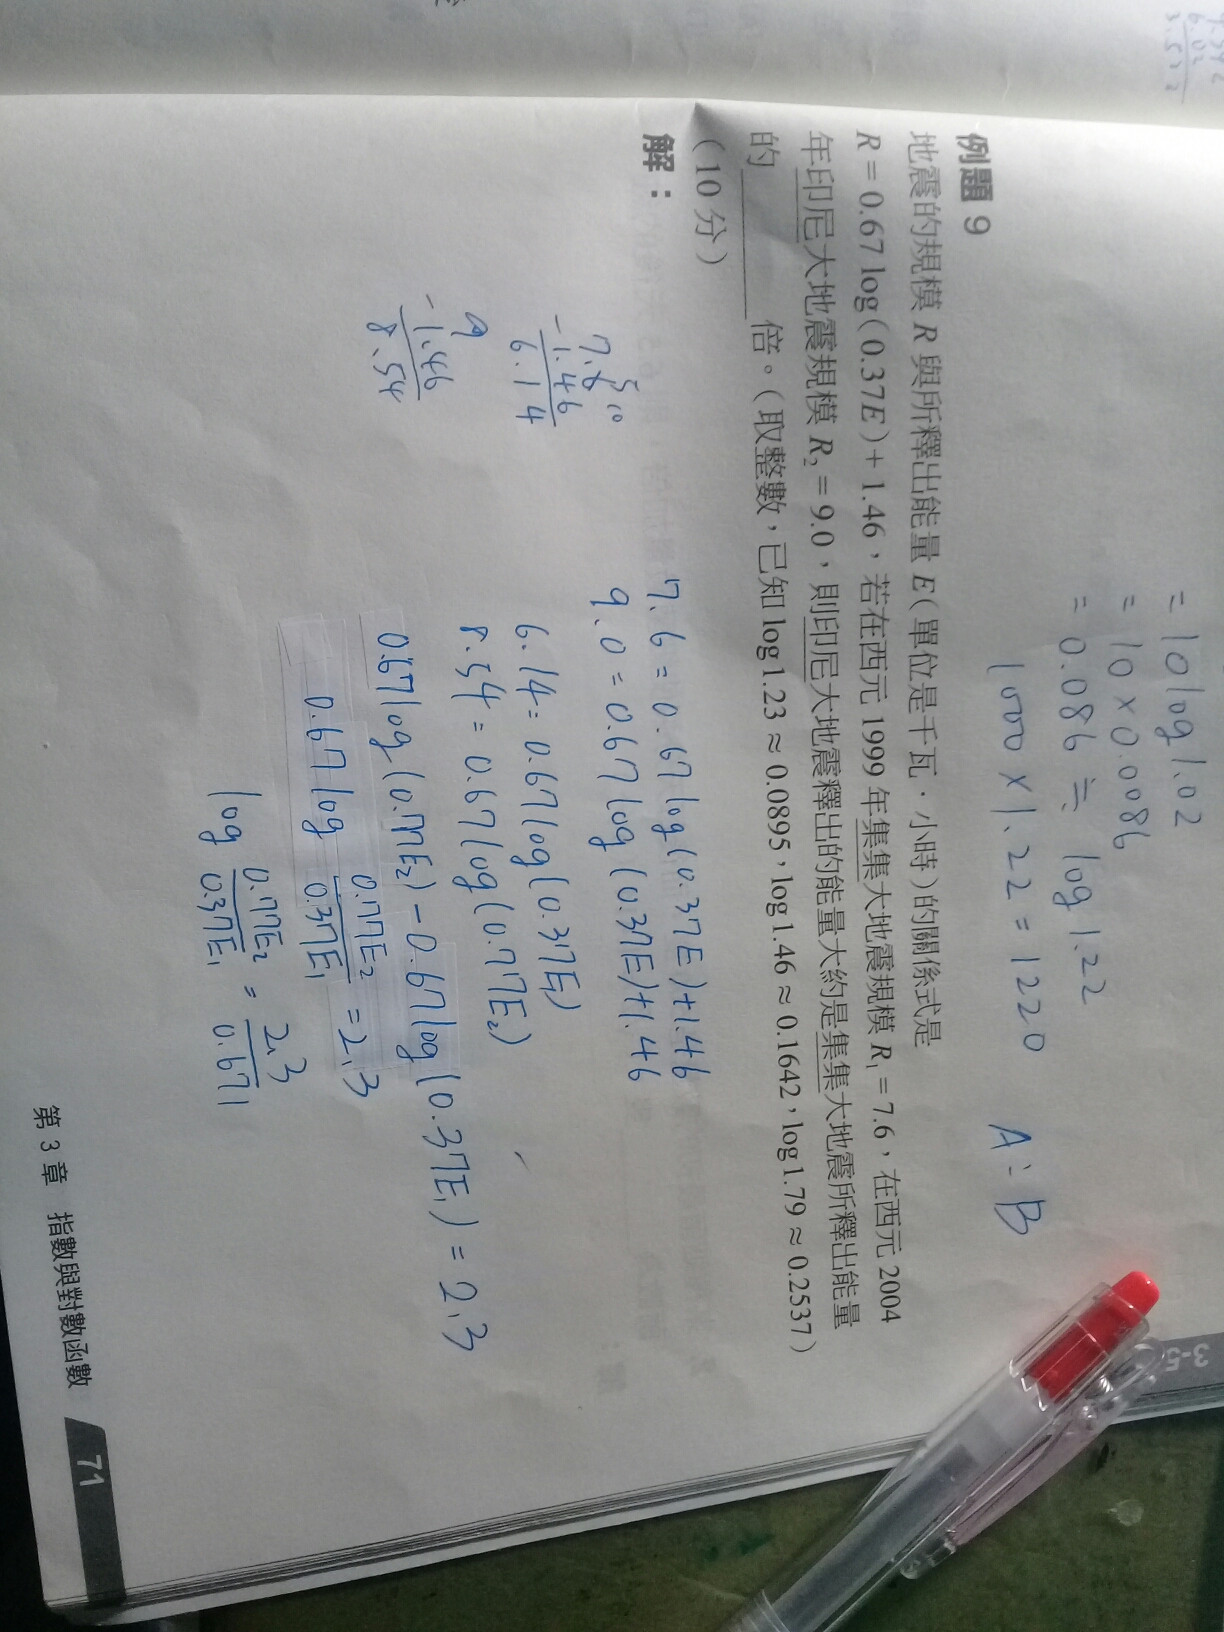 = 10log1.02
= 10×0.0086
= 0.086 ≒ log1.22
1000×1.22=1220
A:B
例題 9
地震的規模 R 與所釋出能量 E(單位是千瓦·小時)的關係式是
R=0.67 log(0.37E)+1.46,若在西元 1999 年集集大地震規模 R₁=7.6,在西元 2004
年印尼大地震規模 R₂=9.0,則印尼大地震釋出的能量大約是集集大地震所釋出能量
的______倍。(取整數,已知 log1.23≈0.0895,log1.46≈0.1642,log1.79≈0.2537)
(10 分)
解:
7.6=0.67log(0.37E)+1.46
9.0=0.67log(0.37E)+1.46
5 10
7.6
-1.46
6.14
9
-1.46
8.54
6.14=0.67log(0.37E₁)
8.54=0.67log(0.77E₂)
0.67log(0.77E₂)-0.67log(0.37E₁)=2.3
0.67log 0.77E₂/0.37E₁=2.3
log 0.77E₂/0.37E₁ = 2.3/0.671
第 3 章 指數與對數函數 71
3-5